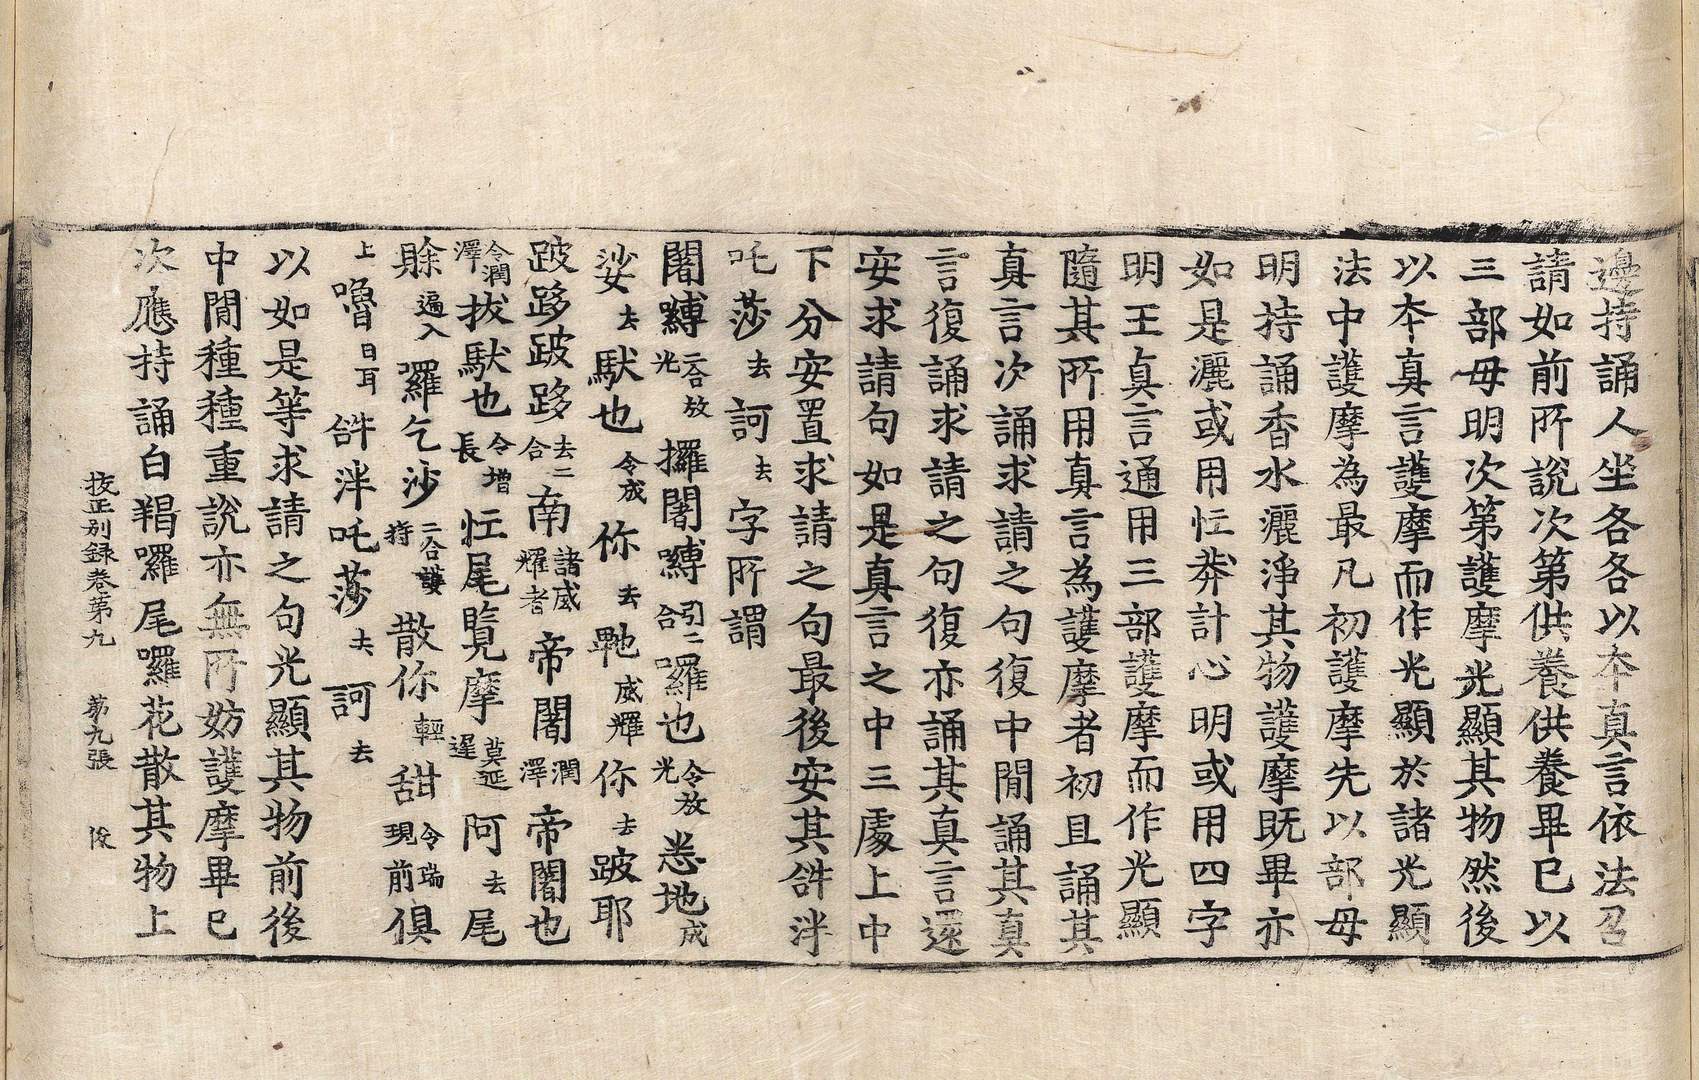 邊持誦人坐各各以本真言依法召
請如前所說次第供養供養畢已以
三部母明次第護摩光顯其物然後
以本真言護摩而作光顯於諸光顯
法中護摩為最凡初護摩先以部母
明持誦香水灑淨其物護摩既畢亦
如是灑或用忙莾計心明或用四字
明王真言通用三部護摩而作光顯
隨其所用真言為護摩者初且誦其
真言次誦求請之句復中閒誦其真
言復誦求請之句復亦誦其真言還
安求請句如是真言之中三處上中
下分安置求請之句最後安其𤙖泮
吒莎去訶去字所謂
闍嚩二合放光攞闍嚩引二合囉也令放光悉地成
娑去馱也令成你去䫂威耀你去跛耶
跛跢跛跢去二合南諸威耀者帝闍潤澤帝闍也
令潤澤拔馱也令增長忙尾覽摩莫延遲阿去尾
賒遍入囉乞沙二合護持散你輕甜令瑞現前俱
上嚕日耳𤙖泮吒莎去訶去
以如是等求請之句光顯其物前後
中閒種種重說亦無所妨護摩畢已
次應持誦白羯囉尾囉花散其物上
挍正別録卷第九　第九張　俊